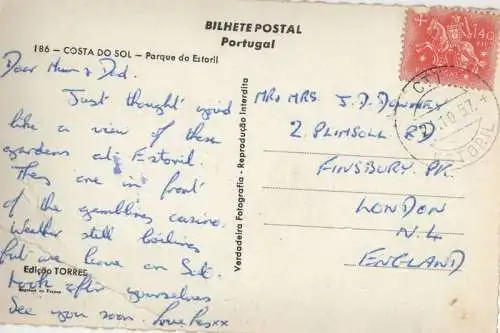 BILHETE POSTAL
Portugal
186 - COSTA DO SOL - Parque do Estoril
Dear Mum & Dad.
Just thought you'd
like a view of these
gardens at Estoril.
They are in front
of the gambling casino.
Weather still
but we leave on Sat.
Look after yourselves
See you soon. Love xx
Edição TORRES
Verdadeira Fotografia - Reprodução Interdita
MR & MRS. J. D.
2, PLIMSOLL RD,
FINSBURY PK.
LONDON
N.4.
ENGLAND
1$40
CTT
10.57
ESTORIL